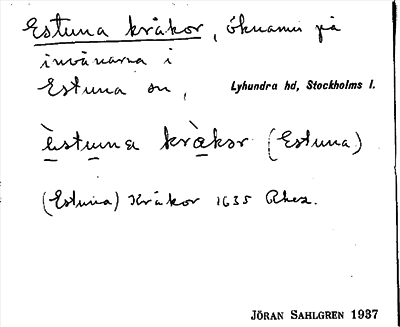 Estuna kråkor, öknamn på
invånarna i
Estuna sn, Lyhundra hd, Stockholms l.
èstuna kràkər (Estuna)
(Estuna) Kråkor 1635 Rhez.
JÖRAN SAHLGREN 1937